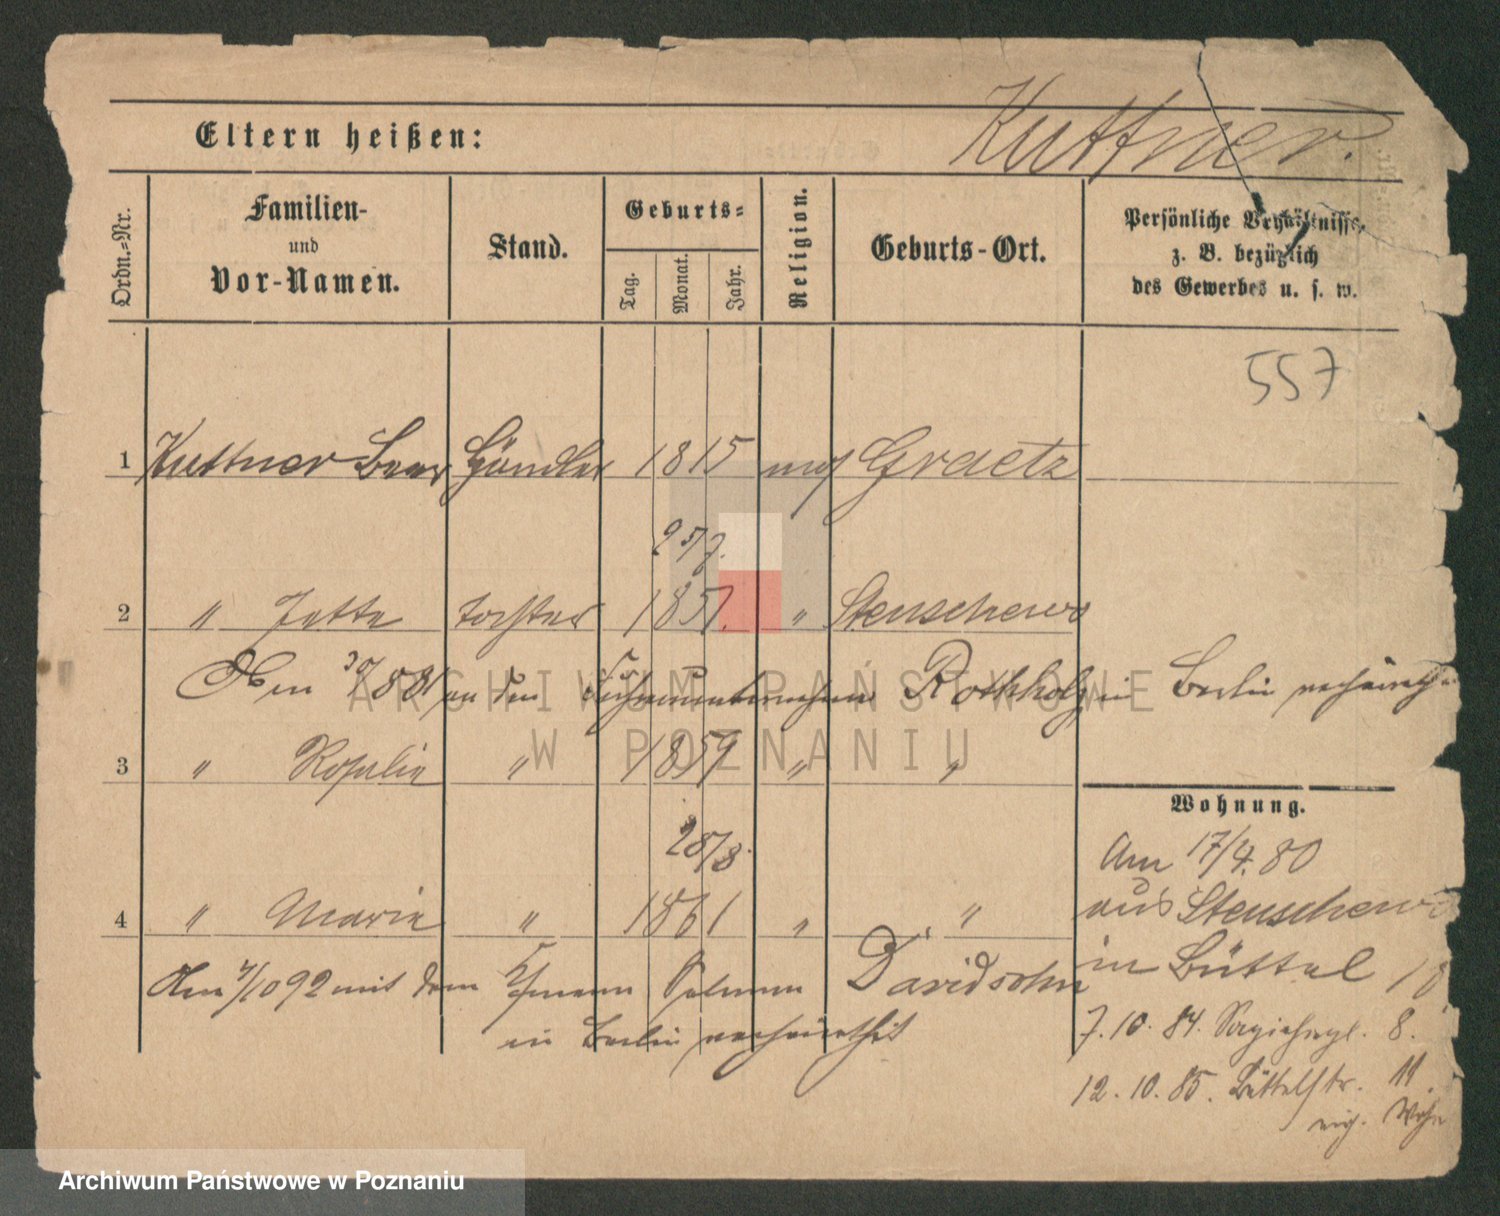 Kuttner.
Eltern heißen:
Ordn.-Nr.
Familien- und Vor-Namen.
Stand.
Geburts-
Tag. Monat. Jahr.
Religion.
Geburts-Ort.
Persönliche Verhältnisse, z. B. bezüglich des Gewerbes u. s. w.
557
1 Kuttner Beer Händler 1815 mos Graetz
25/7.
2 " Jette Tochter 1857. " Stenschewo
Am 30/7 881 an den Fuhrunternehmer Rothholz in Berlin verheirathet
3 " Rosalie " 1859 " "
Wohnung.
28/8.
Am 17/4. 80
4 " Marie " 1861 " "
aus Stenschewo
Am 4/10 92 mit dem Kfmann Salomon Davidsohn
in Büttel 18
in Berlin verheirathet
7. 10. 84. 8.
12. 10. 85. Büttelstr. 11.
eig. Wohn
ARCHIWUM PAŃSTWOWE
W POZNANIU
Archiwum Państwowe w Poznaniu